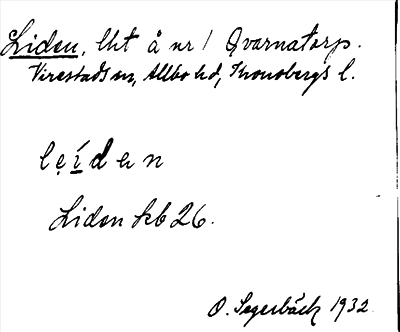 Liden, lht å nr 1 Qvarnatorp.
Virestads sn, Allbo hd, Kronobergs l.
lẹí̱dən
Liden kb 26.
O. Segerbäck 1932